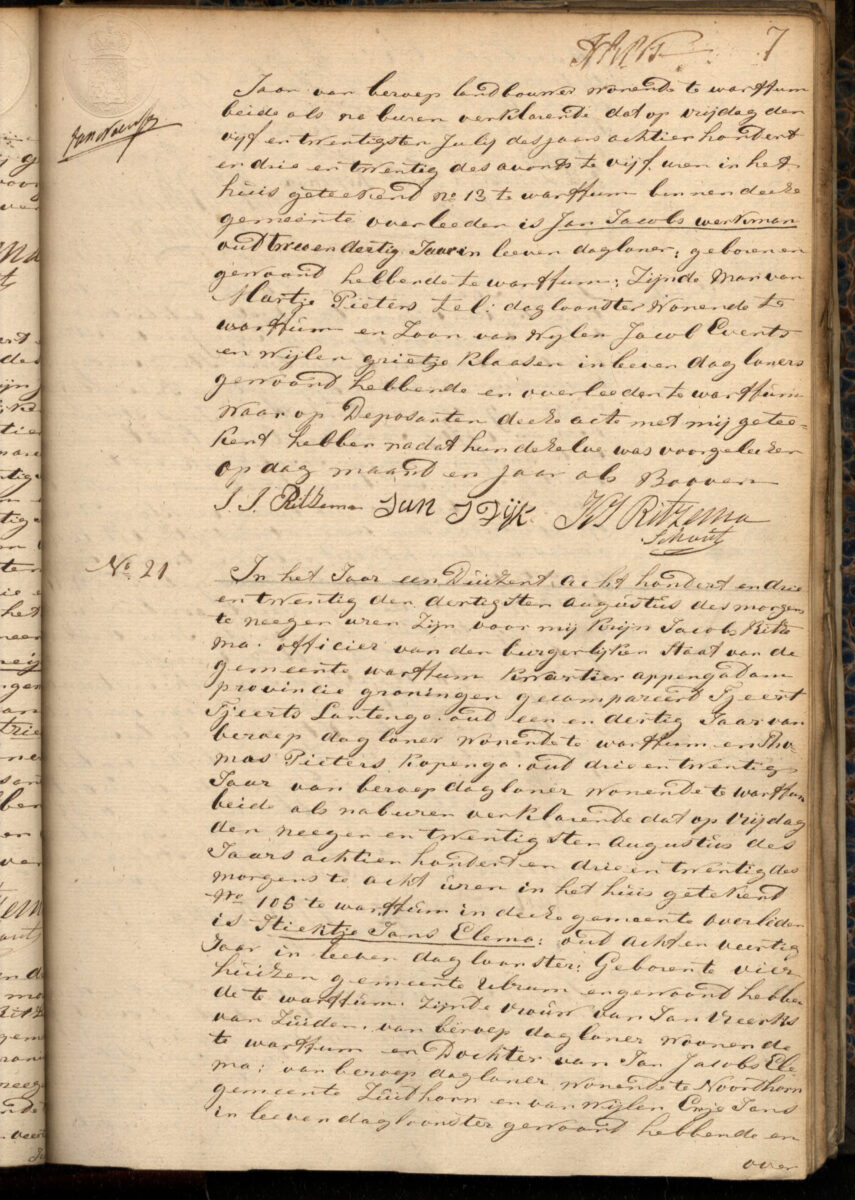 7
Jaar van beroep landbouwer wonende te warffum
beide als na buren verklarende dat op vrijdag den
vijf en twentigsten July des jaars achtien hondert
en drie en twentig des avonts te vijf uren in het
huis geteekend no 13 te warffum binnen deeze
gemeente overleeden is Jan Jacobs werkman
oud twee en dertig Jaar in leeven dagloner, geboren en
gewoond hebbende te warffum; Zijnde Man van
Martje Pieters Zel: dagloonster wonende te
warffum en Zoon van Wylen Jacob Everts
en Wijlen grietje Klaasen in leeven dagloners
gewoond hebbende en overleeden te warffum
waar op Deposanten deeze acte met mij getee-
kent hebben nadat hun dezelve was voorgeleezen
op dag maand en jaar als Booven
J. J. Ritzema Jan J Dijk KJ Ritzema
Schout
No. 21
In het Jaar een Duizent acht hondert en drie
en twentig den dertigsten augustus des morgens
te neegen uren Zijn voor mij Krijn Jacobs Ritze
ma. officier van den burgerlijken Staat van de
gemeente warffum kwartier appengadam
provincie groningen gecompareerd Tjeert
Tjeerts Lantenga. oud een en dertig Jaar van
beroep dagloner wonende te warffum. en Tho
mas Pieters Kopenga. oud drie en twentig
Jaar van beroep dagloner wonende te warffum
beide als naburen verklarende dat op Vrijdag
den neegen en twentigsten augustus des
Jaars achtien hondert en drie en twentig des
morgens te acht uren in het huis getekend
No 105 te warffum in deeze gemeente overliden
is Stientje Jans Elema: oud acht en veertig
Jaar in leeven dagloonster: Geboren te vier
huizen gemeente Ulrum en gewoond hebben
de te warffum. Zijnde vrouw van Jan Freerks
van Zuiden. van beroep dagloner woonende
te warffum en Dochter van Jan Jacobs Ele
ma; van beroep dagloner wonende te Noordhorn
gemeente Zuidhorn en van wijlen Enje Jans
in leeven dagloonster gewoond hebbende en
over